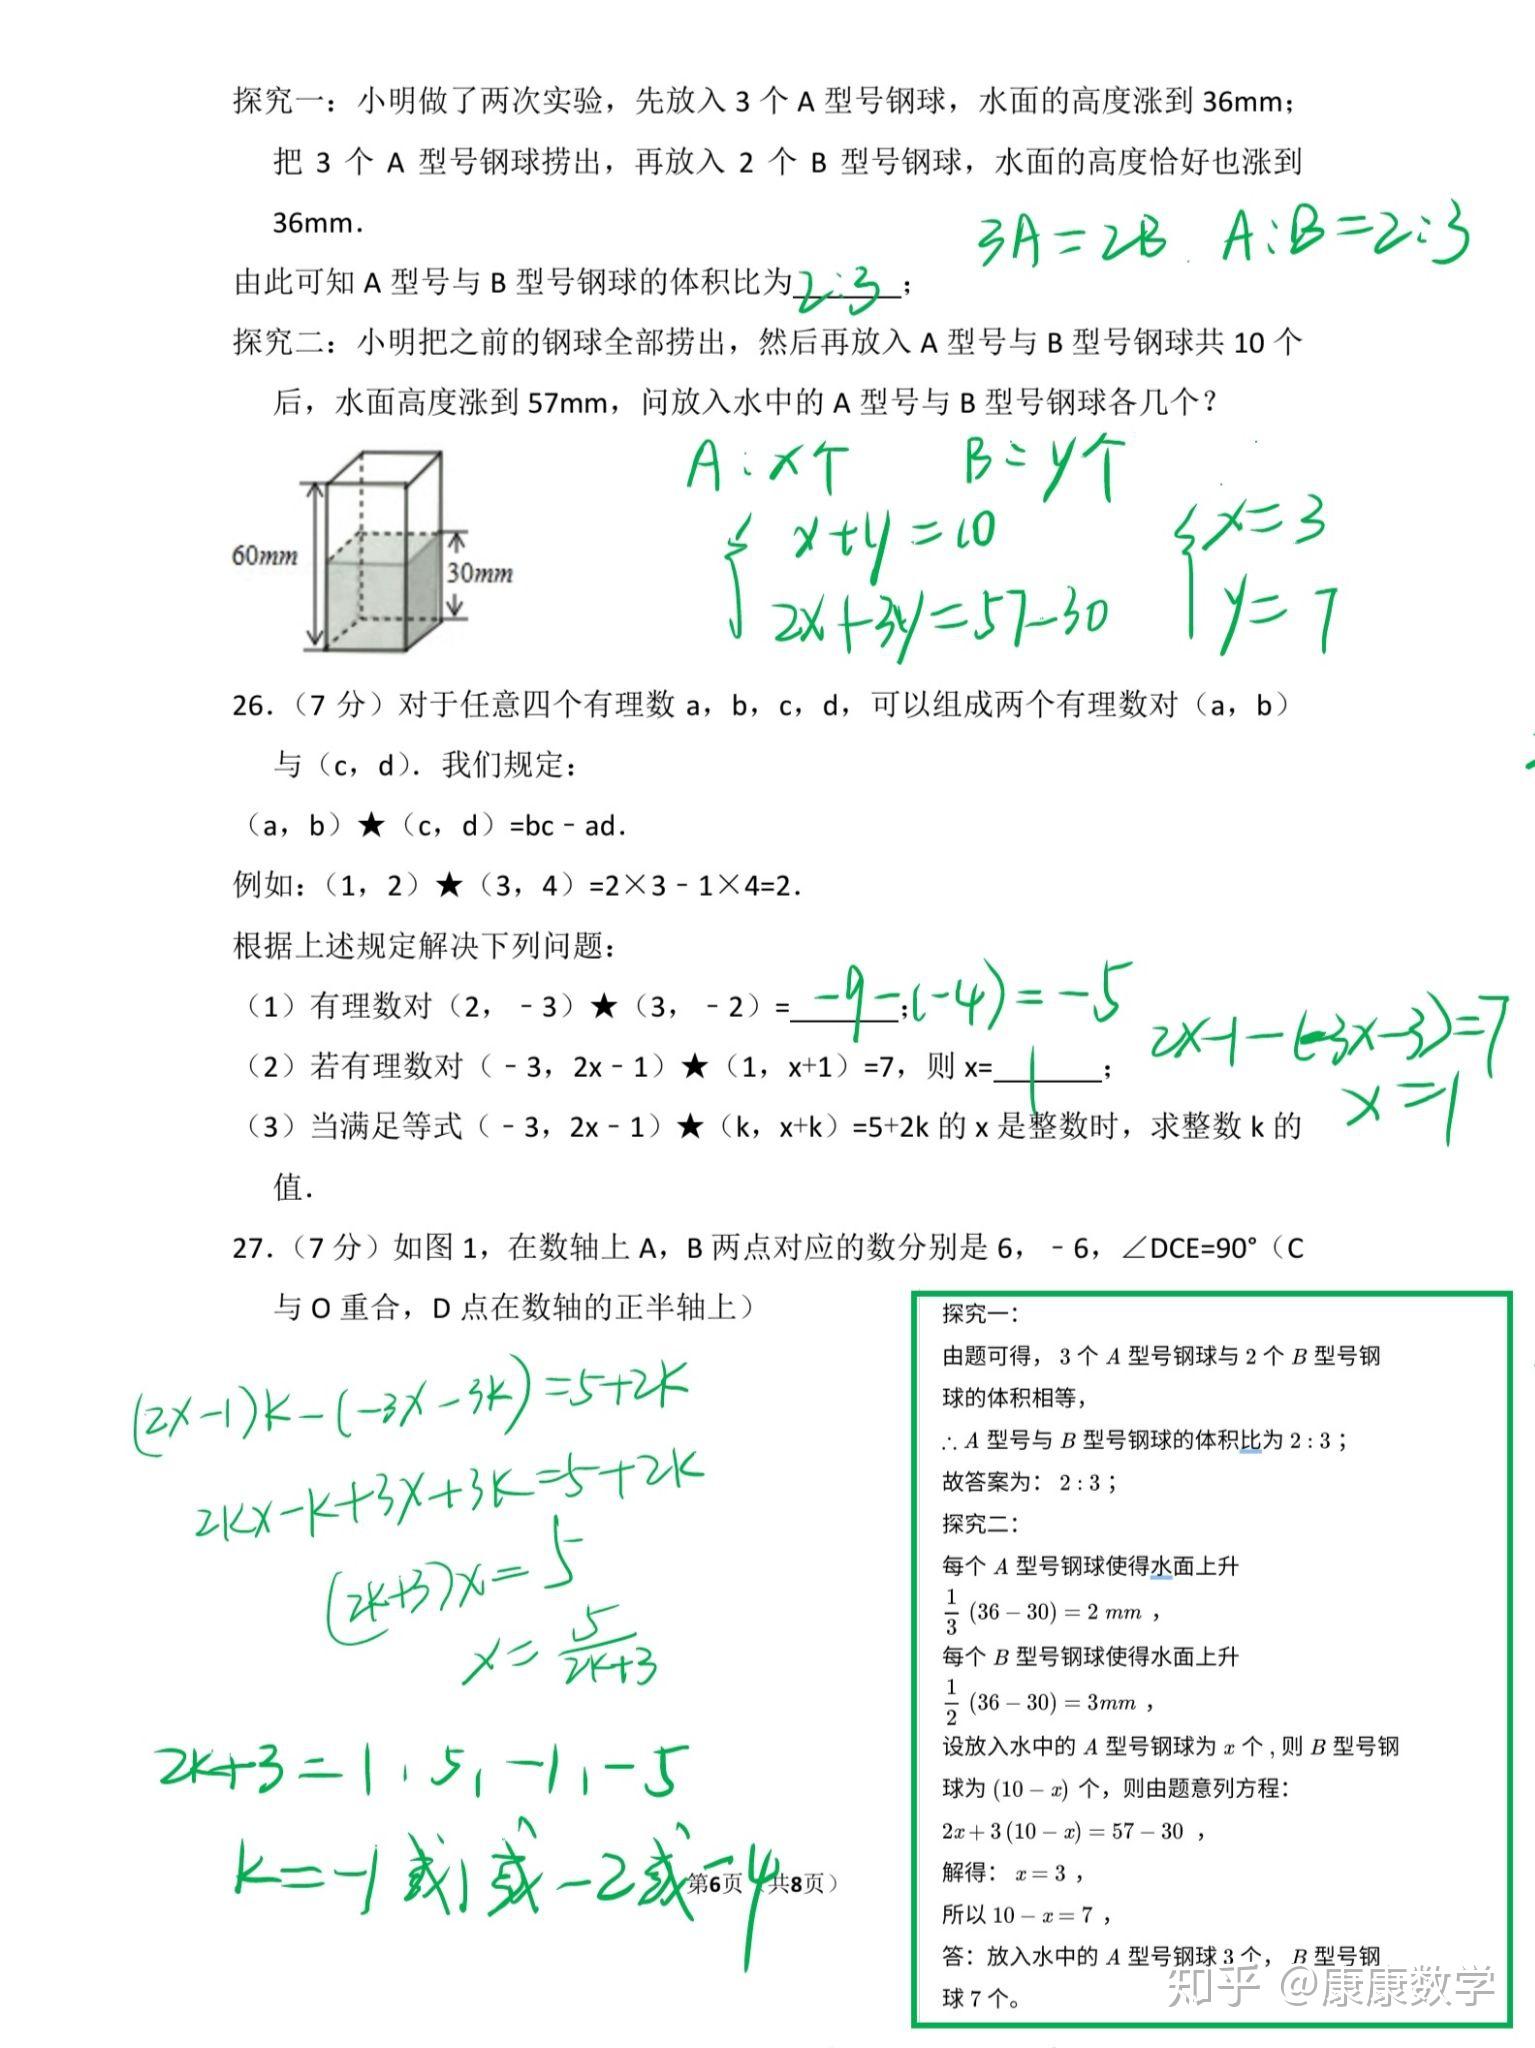 探究一：小明做了两次实验，先放入 3 个 A 型号钢球，水面的高度涨到 36mm；
把 3 个 A 型号钢球捞出，再放入 2 个 B 型号钢球，水面的高度恰好也涨到
36mm．
3A=2B. A:B=2:3
由此可知 A 型号与 B 型号钢球的体积比为 2:3 ；
探究二：小明把之前的钢球全部捞出，然后再放入 A 型号与 B 型号钢球共 10 个
后，水面高度涨到 57mm，问放入水中的 A 型号与 B 型号钢球各几个？
A：x个 B=y个
x+y=10
2x+3y=57-30
x=3
y=7
60mm
30mm
26．（7 分）对于任意四个有理数 a，b，c，d，可以组成两个有理数对（a，b）
与（c，d）．我们规定：
（a，b）★（c，d）=bc﹣ad．
例如：（1，2）★（3，4）=2×3﹣1×4=2．
根据上述规定解决下列问题：
（1）有理数对（2，﹣3）★（3，﹣2）= -9-(-4)=-5 ；
（2）若有理数对（﹣3，2x﹣1）★（1，x+1）=7，则 x= 1 ；
2x-1-(-3x-3)=7
x=1
（3）当满足等式（﹣3，2x﹣1）★（k，x+k）=5+2k 的 x 是整数时，求整数 k 的
值．
27．（7 分）如图 1，在数轴上 A，B 两点对应的数分别是 6，﹣6，∠DCE=90°（C
与 O 重合，D 点在数轴的正半轴上）
(2x-1)k-(-3x-3k)=5+2k
2kx-k+3x+3k=5+2k
(2k+3)x=5
x=5/(2k+3)
2k+3=1,5,-1,-5
k=-1或1或-2或-4
第6页（共8页）
探究一：
由题可得，3 个 A 型号钢球与 2 个 B 型号钢
球的体积相等，
∴ A 型号与 B 型号钢球的体积比为 2：3；
故答案为：2：3；
探究二：
每个 A 型号钢球使得水面上升
1/3 (36－30)＝2 mm ，
每个 B 型号钢球使得水面上升
1/2 (36－30)＝3mm ，
设放入水中的 A 型号钢球为 x 个，则 B 型号钢
球为 (10－x) 个，则由题意列方程：
2x+3(10－x)＝57－30 ，
解得：x＝3 ，
所以 10－x＝7 ，
答：放入水中的 A 型号钢球 3 个，B 型号钢
球 7 个。
知乎 @康康数学